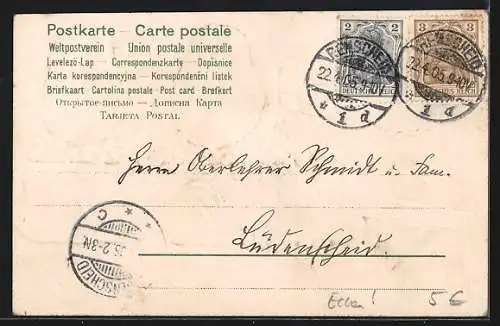 Postkarte – Carte postale
Weltpostverein – Union postale universelle
Levelező-Lap – Correspondenzkarte – Dopisnice
Karta korespondencyjna – Korespondenční lístek
Briefkaart – Cartolina postale – Post card – Brefkort
Открытое письмо – Дописна Карта
TARJETA POSTAL
2 2
DEUTSCHES REICH
3 3
REMSCHEID
22.4.05
* 1 d
REMSCHEID
22.4.05
* 1 d
Herrn Oberlehrer Schmidt u. Fam.
Lüdenscheid.
LÜDENSCHEID
05. 2-3N.
* * C
Ecken!
5 €